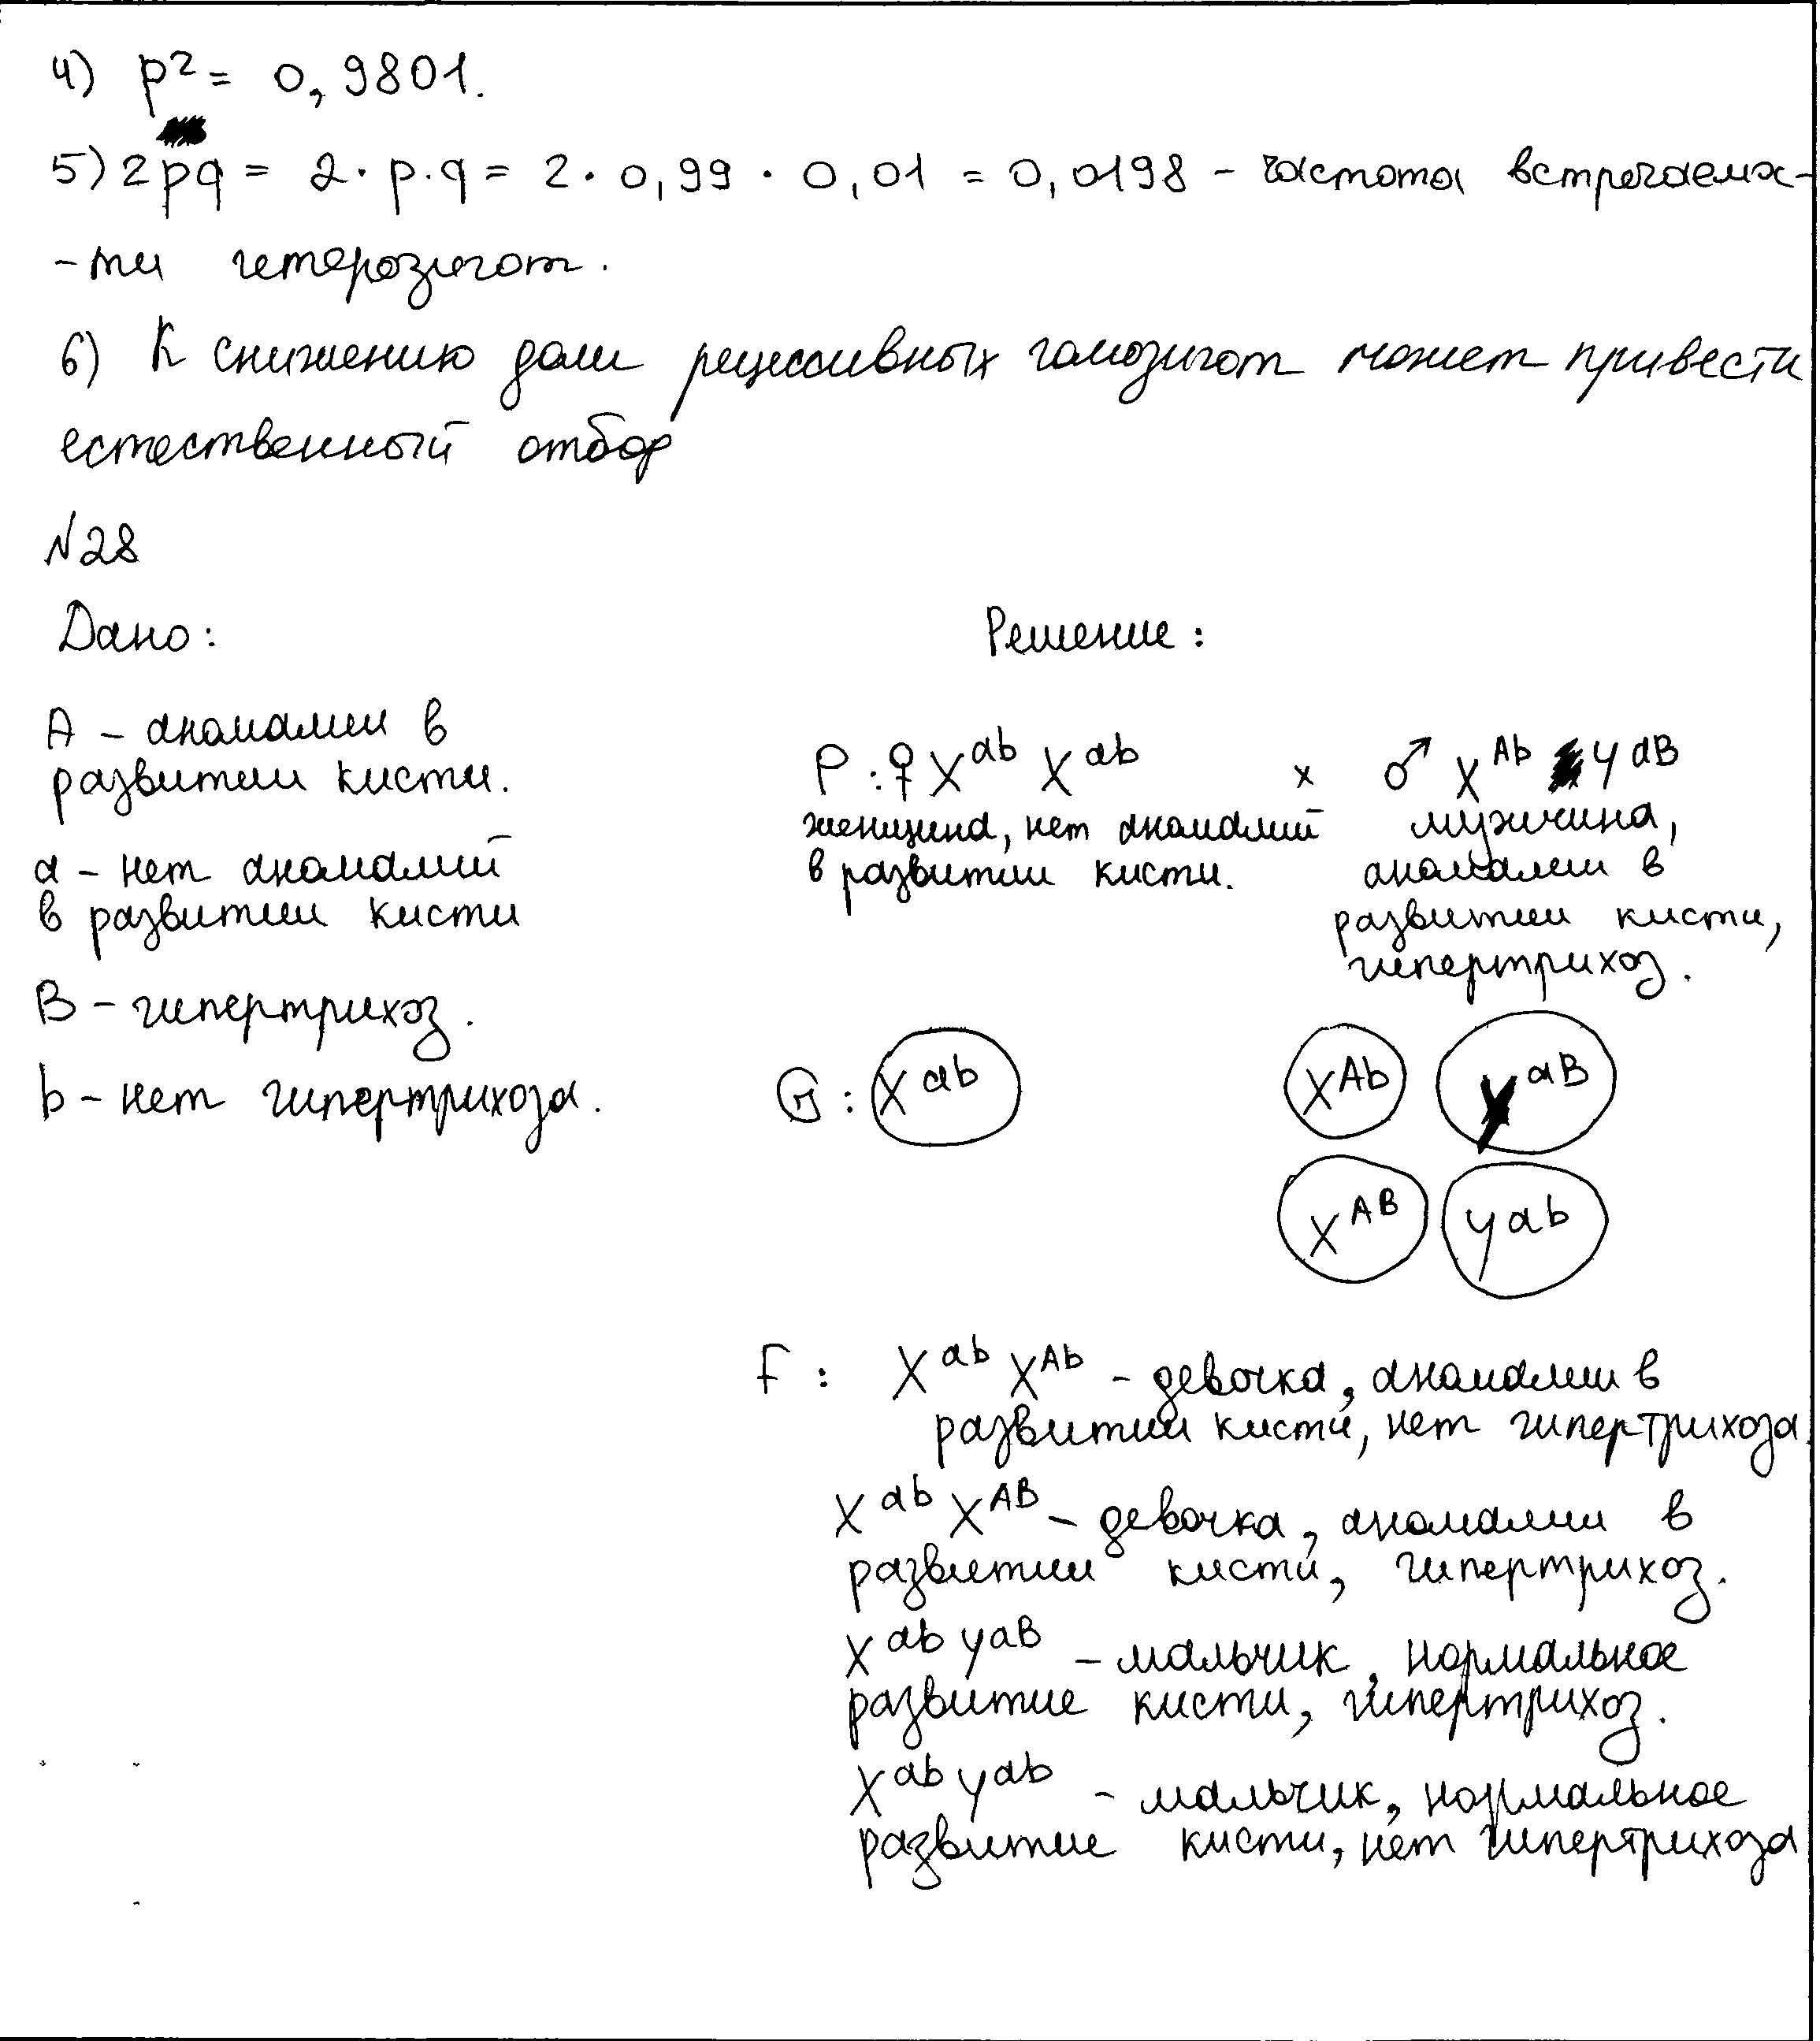 4) p² = 0,9801.
5) 2pq = 2·p·q = 2·0,99·0,01 = 0,0198 – частота встречаемос-
-ти гетерозигот.
6) К снижению доли рецессивных гомозигот может привести
естественный отбор
№28
Дано:
Решение:
A – аномалии в
развитии кисти.
a – нет аномалий
в развитии кисти
B – гипертрихоз.
b – нет гипертрихоза.
P: ♀ X^ab X^ab × ♂ X^Ab Y^aB
женщина, нет аномалий
в развитии кисти.
мужчина,
аномалии в
развитии кисти,
гипертрихоз.
G: X^ab X^Ab Y^aB
X^AB Y^ab
F: X^ab X^Ab – девочка, аномалии в
развитии кисти, нет гипертрихоза.
X^ab X^AB – девочка, аномалии в
развитии кисти, гипертрихоз.
X^ab Y^aB – мальчик, нормальное
развитие кисти, гипертрихоз.
X^ab Y^ab – мальчик, нормальное
развитие кисти, нет гипертрихоза